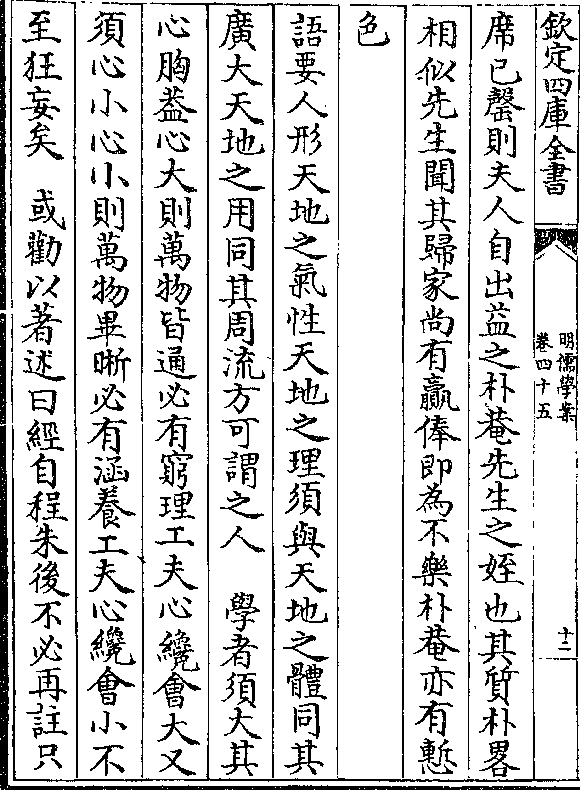 欽定四庫全書
明儒學案
卷四十五
十二
席已罄則夫人自出益之朴菴先生之姪也其質朴畧
相似先生聞其歸家尚有贏俸即為不樂朴菴亦有慙
色
語要人形天地之氣性天地之理須與天地之體同其
廣大天地之用同其周流方可謂之人　學者須大其
心胸葢心大則萬物皆通必有窮理工夫心纔會大又
須心小心小則萬物畢晰必有涵養工夫心纔會小不
至狂妄矣　或勸以著述曰經自程朱後不必再註只